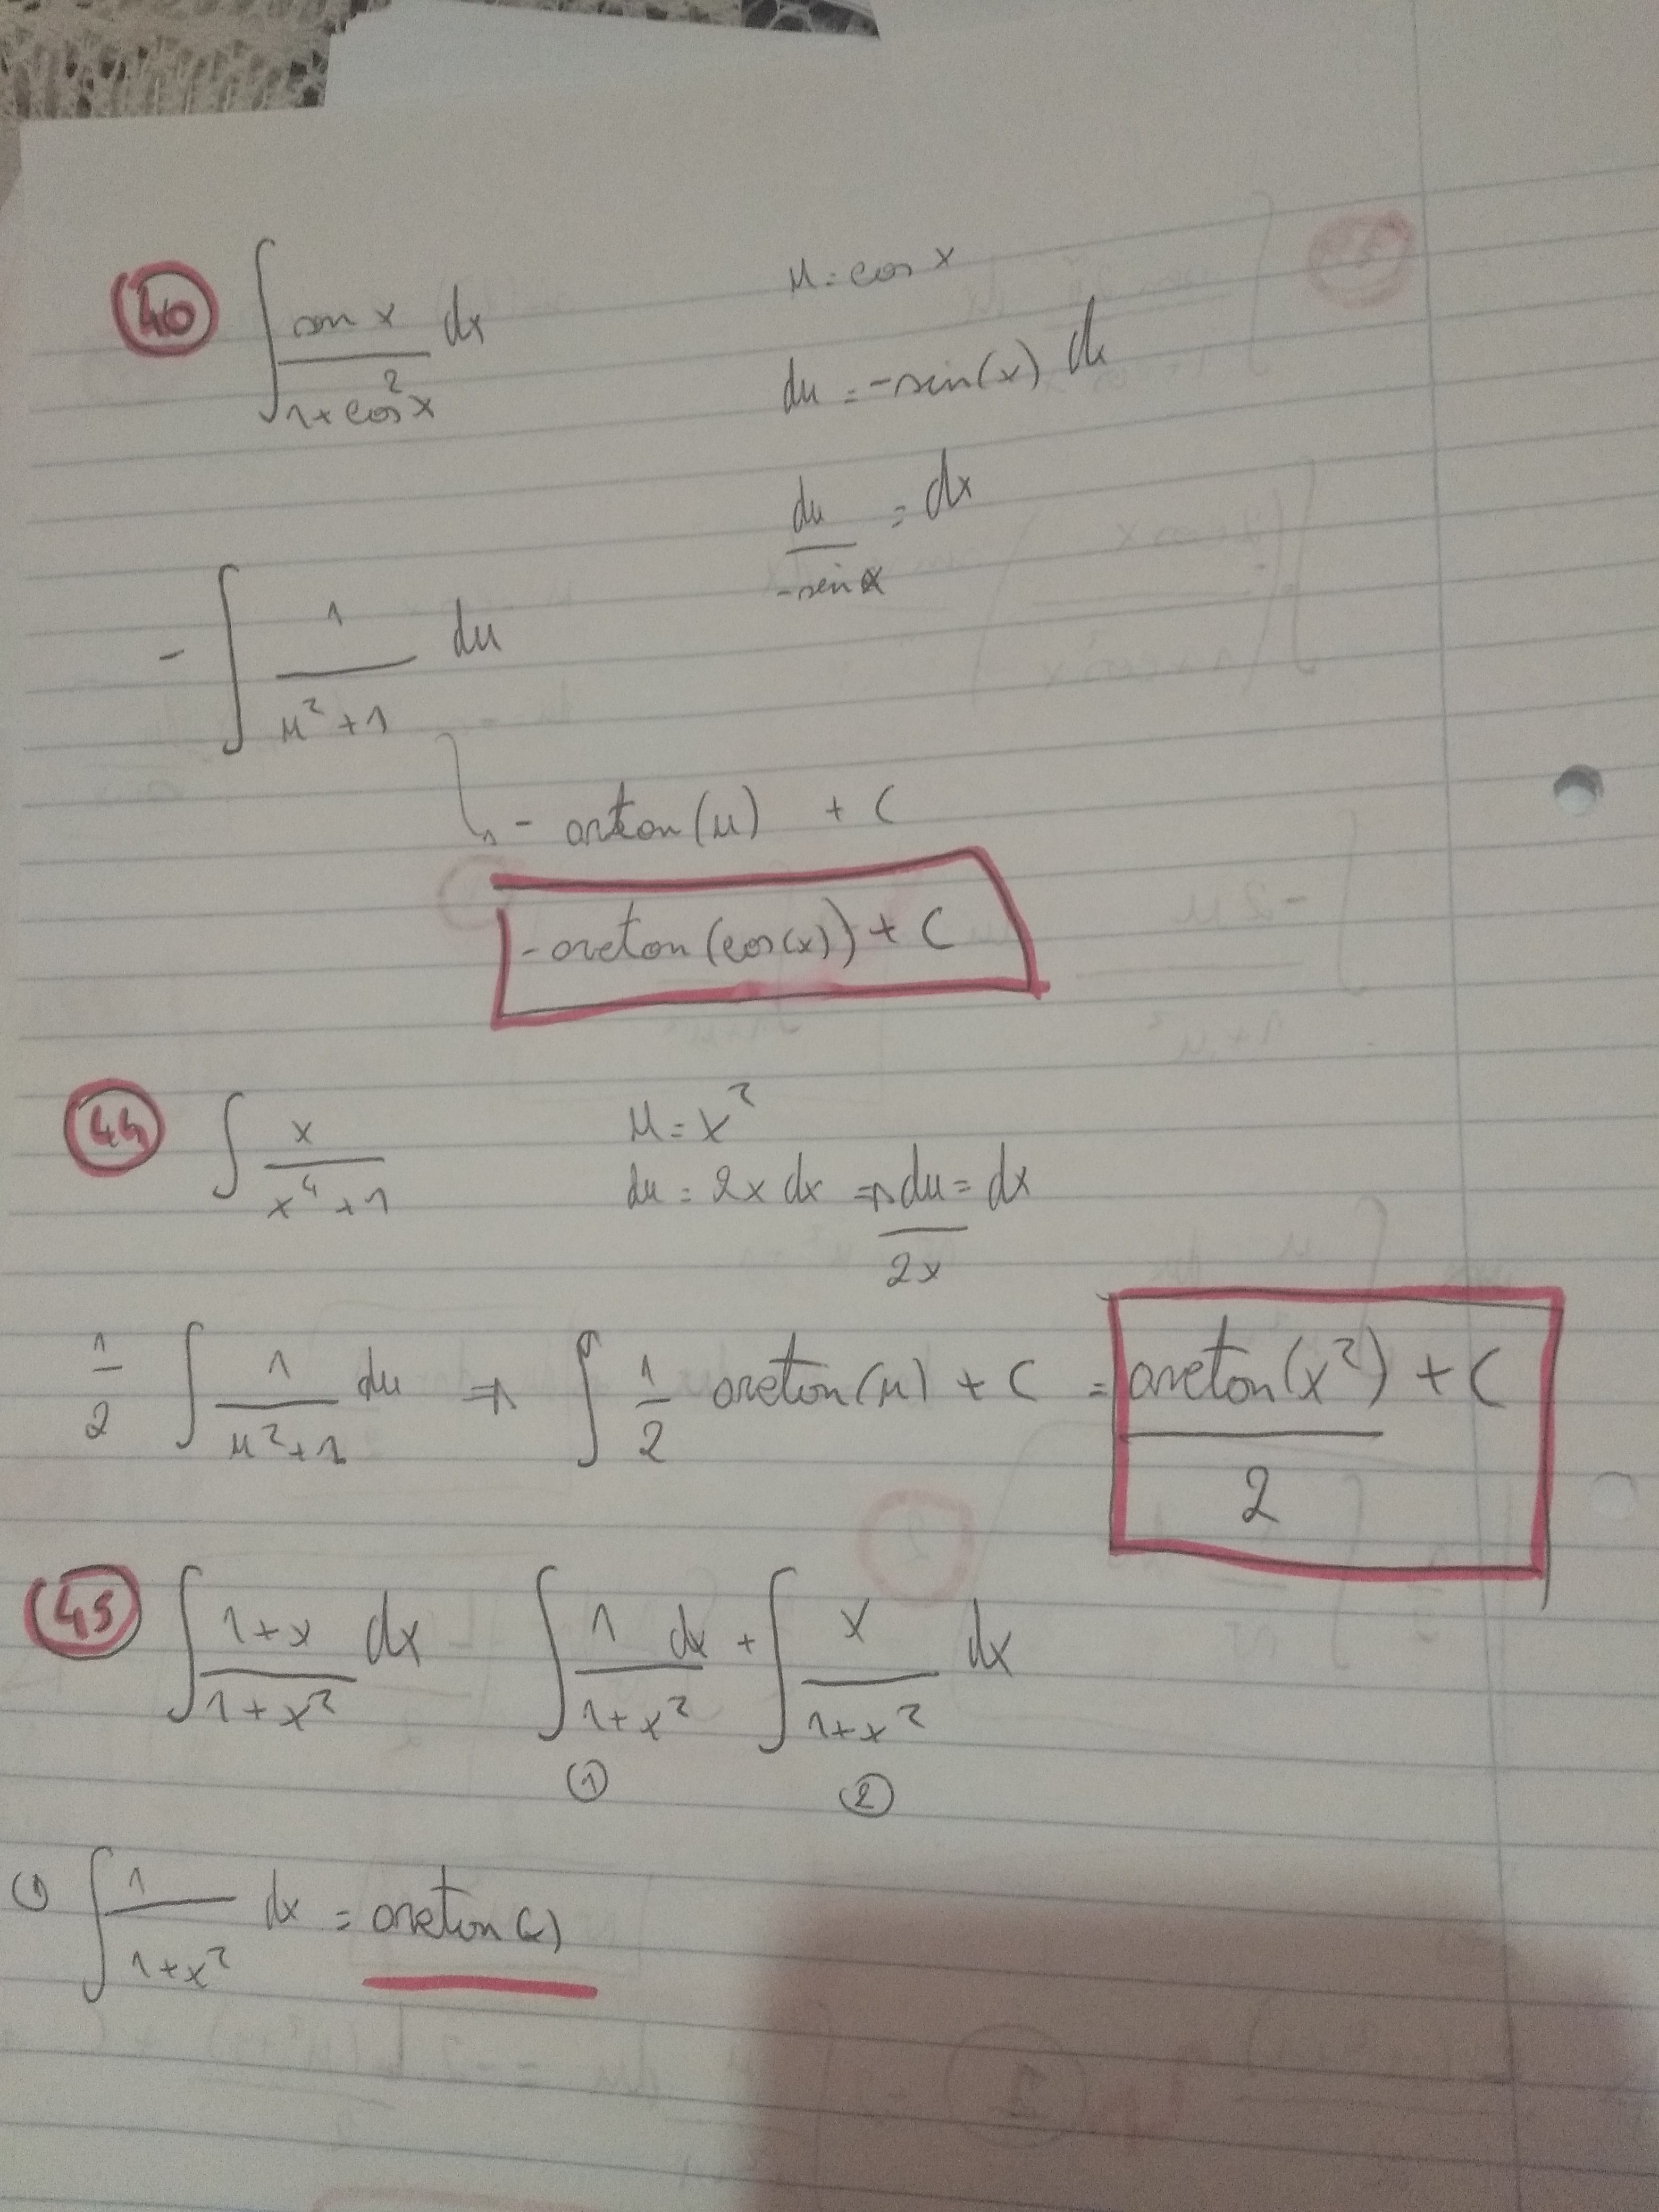 40 ∫ sin x / 1+cos²x dx    u = cos x
du = -sin(x) dx
du / -sin x = dx
- ∫ 1 / u²+1 du
↳ - arctan(u) + C
-arctan(cos(x)) + C
44 ∫ x / x⁴+1    u = x²
du = 2x dx ⇒ du / 2x = dx
1/2 ∫ 1 / u²+1 du ⇒ ∫ 1/2 arctan(u) + C = arctan(x²) / 2 + C
45 ∫ 1+x / 1+x² dx    ∫ 1 dx / 1+x² + ∫ x / 1+x² dx
① ②
① ∫ 1 / 1+x² dx = arctan(x)